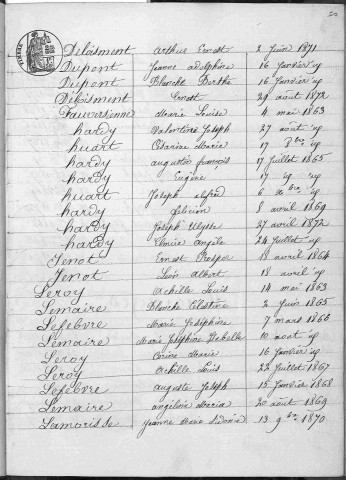 Deloisment Arthur Ernest 2 juin 1871
Dupont Jeanne adelphine 16 janvier "
Dupont Blanche Berthe 16 janvier "
Deloisment Ernest 29 août 1872
Fauversienne Marie Louise 4 mai 1863
hardy Valentine Joseph 27 août "
huart Césarine Maria 17 8bre "
hardy augustin françois 17 juillet 1865
hardy Eugène 17 "
huart Joseph alfred 6 "
hardy félicien 8 avril 1869
hardy Joseph Ulysse 27 avril 1872
hardy Elmire angèle 24 juillet "
Jenot Ernest Prosper 18 avril 1864
Jenot Albert 18 avril "
Leroy achille Louis 14 mai 1863
Lemaire Blanche Célestine 2 juin 1865
Lefebvre Marie Joséphine 7 mars 1866
Lemaire Marie Joséphine 10 août "
Leroy Marie 16 janvier "
Leroy achille Louis 22 juillet 1867
Lefebvre auguste Joseph 15 janvier 1868
Lemaire Maria 20 août 1869
Lamorisse Jeanne Marie Sidonie 13 9bre 1870